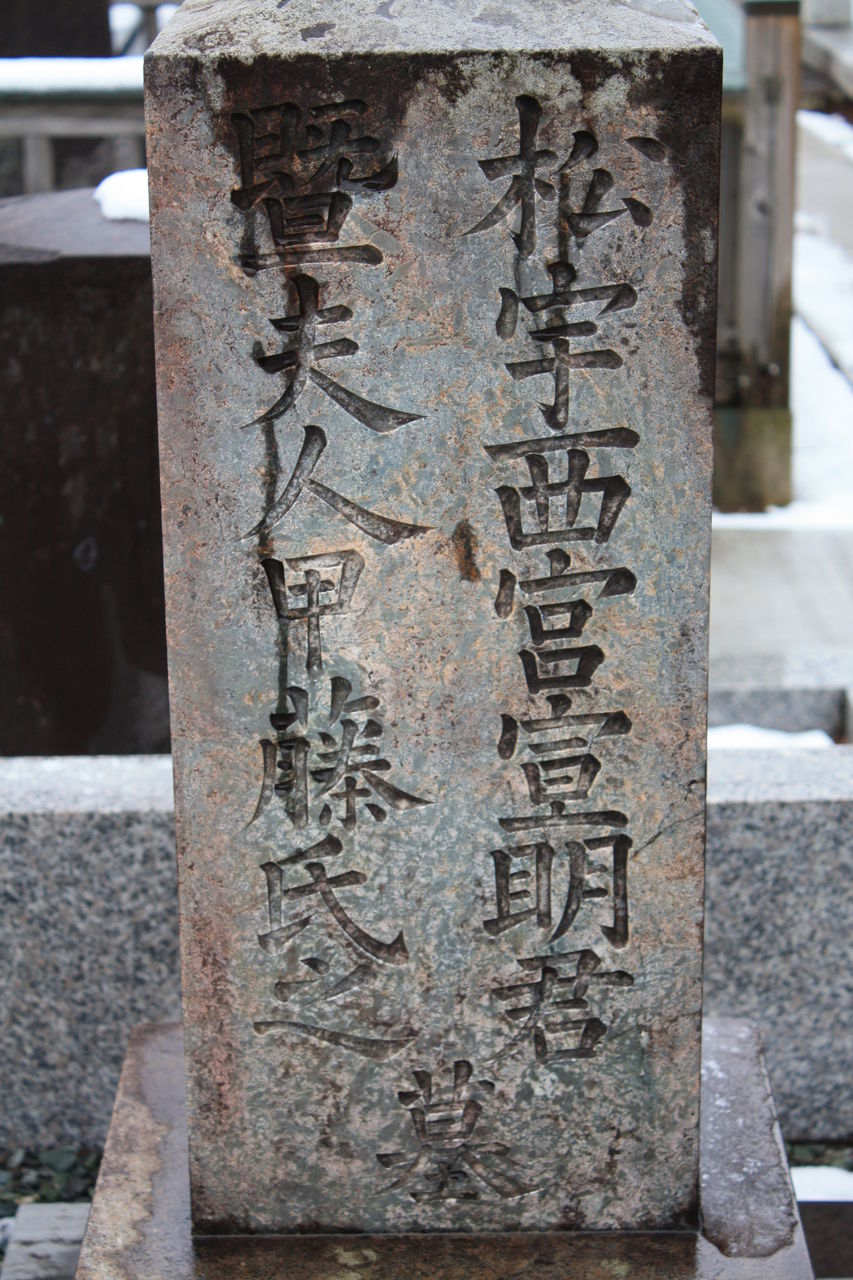 松宇西宮宣眀君
暨夫人甲藤氏之
墓